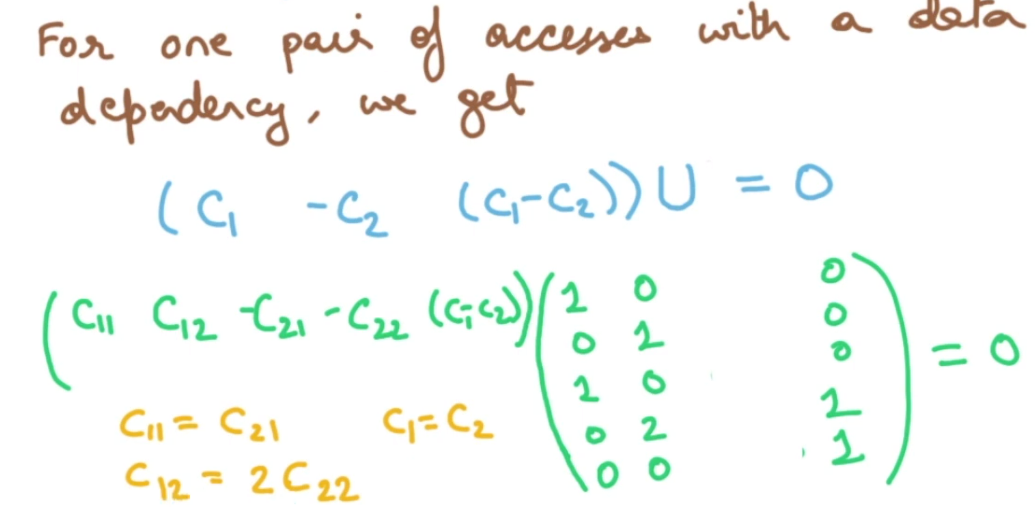 For one pair of accesses with a data
dependency, we get
(C₁ -C₂ (C₁-C₂))U = 0
(C₁₁ C₁₂ -C₂₁ -C₂₂ (C₁-C₂)) (1 0 0
0 1 0
1 0 0
0 2 1
0 0 1) = 0
C₁₁ = C₂₁ C₁ = C₂
C₁₂ = 2C₂₂